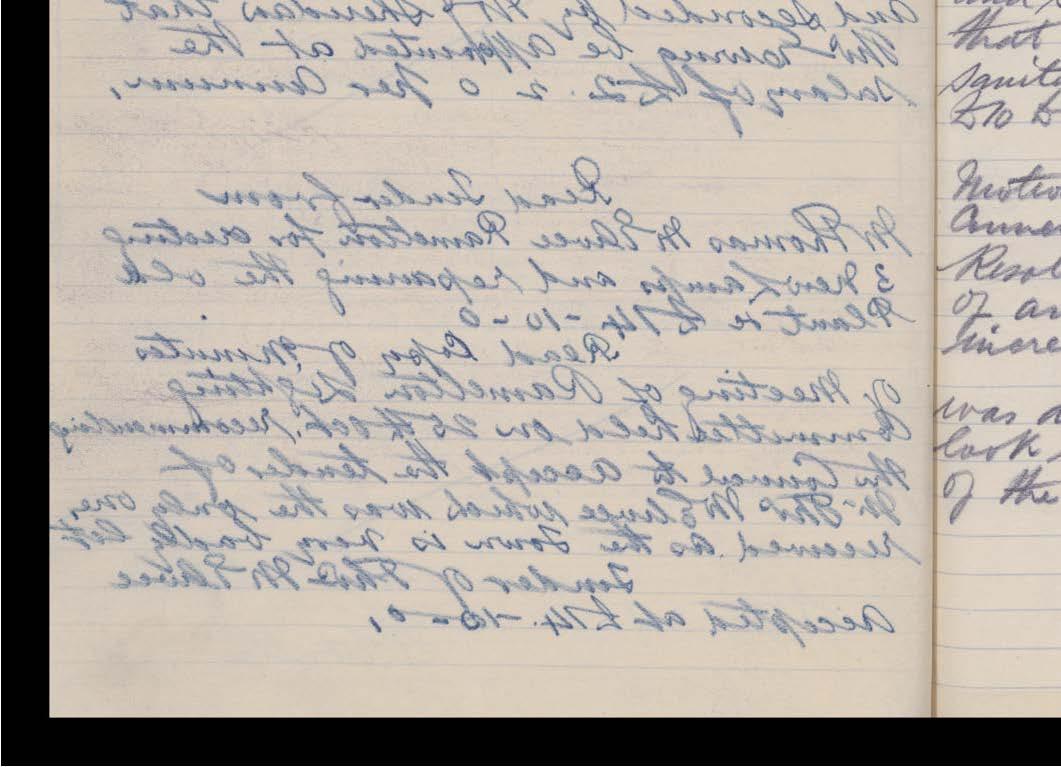 and seconded by Mr J Sheridan that
Mr be appointed at the
salary of £2. 2. 0 Per Annum,
Read Tender from
Mr Thomas McElwee Ramelton for erecting
3 new Lamps and repairing the old
Plant is £14-10-0
Read Copy of Minutes
of Meeting of Ramelton Lighting
Committee held on 25th Oct. recommending
the Council to accept the tender of
Mr Thos McElwee which was the only one,
received as the Town is very badly lit
Tender of Thos McElwee
accepted at £14.-10-0,
that
sanit
to
Motio
Annu
Resol
of an
increa
was a
look
of the